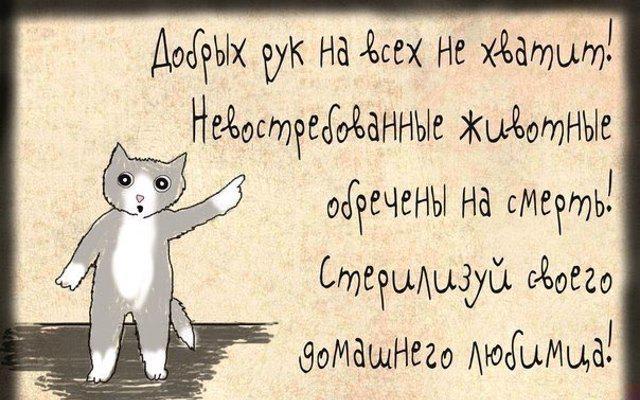 Добрых рук на всех не хватит!
Невостребованные животные
обречены на смерть!
Стерилизуй своего
домашнего любимца!